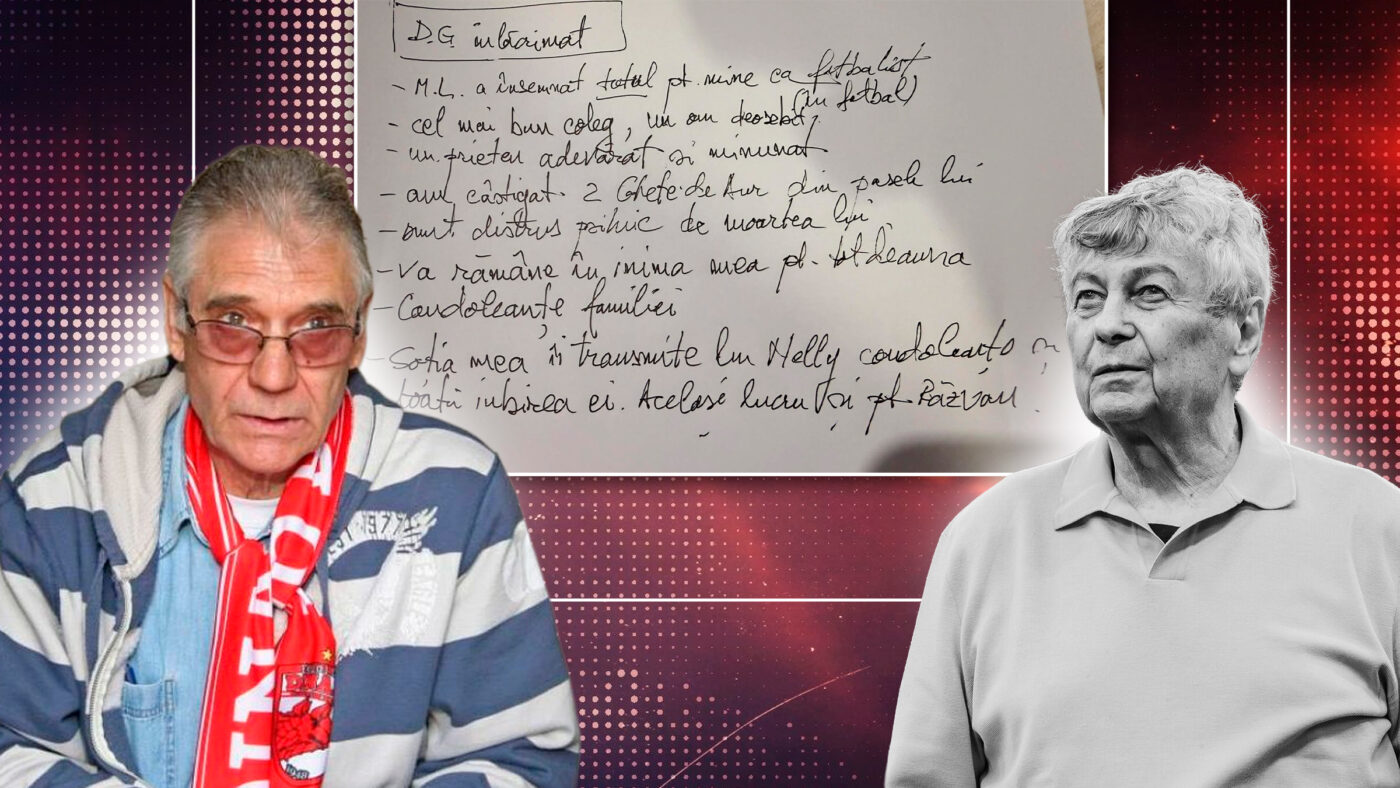 D.G. înlăcrimat
- M.L. a însemnat totul pt. mine ca fotbalist
(în fotbal)
- cel mai bun coleg, un om deosebit,
- un prieten adevărat și minunat
- am câștigat 2 Ghete de Aur din pasele lui
- sunt distrus psihic de moartea lui
- Va rămâne în inima mea pt. totdeauna
- Condoleanțe familiei
- Soția mea îi transmite lui Nelly condoleanțe
toată iubirea ei. Același lucru și pt Răzvan.
1948